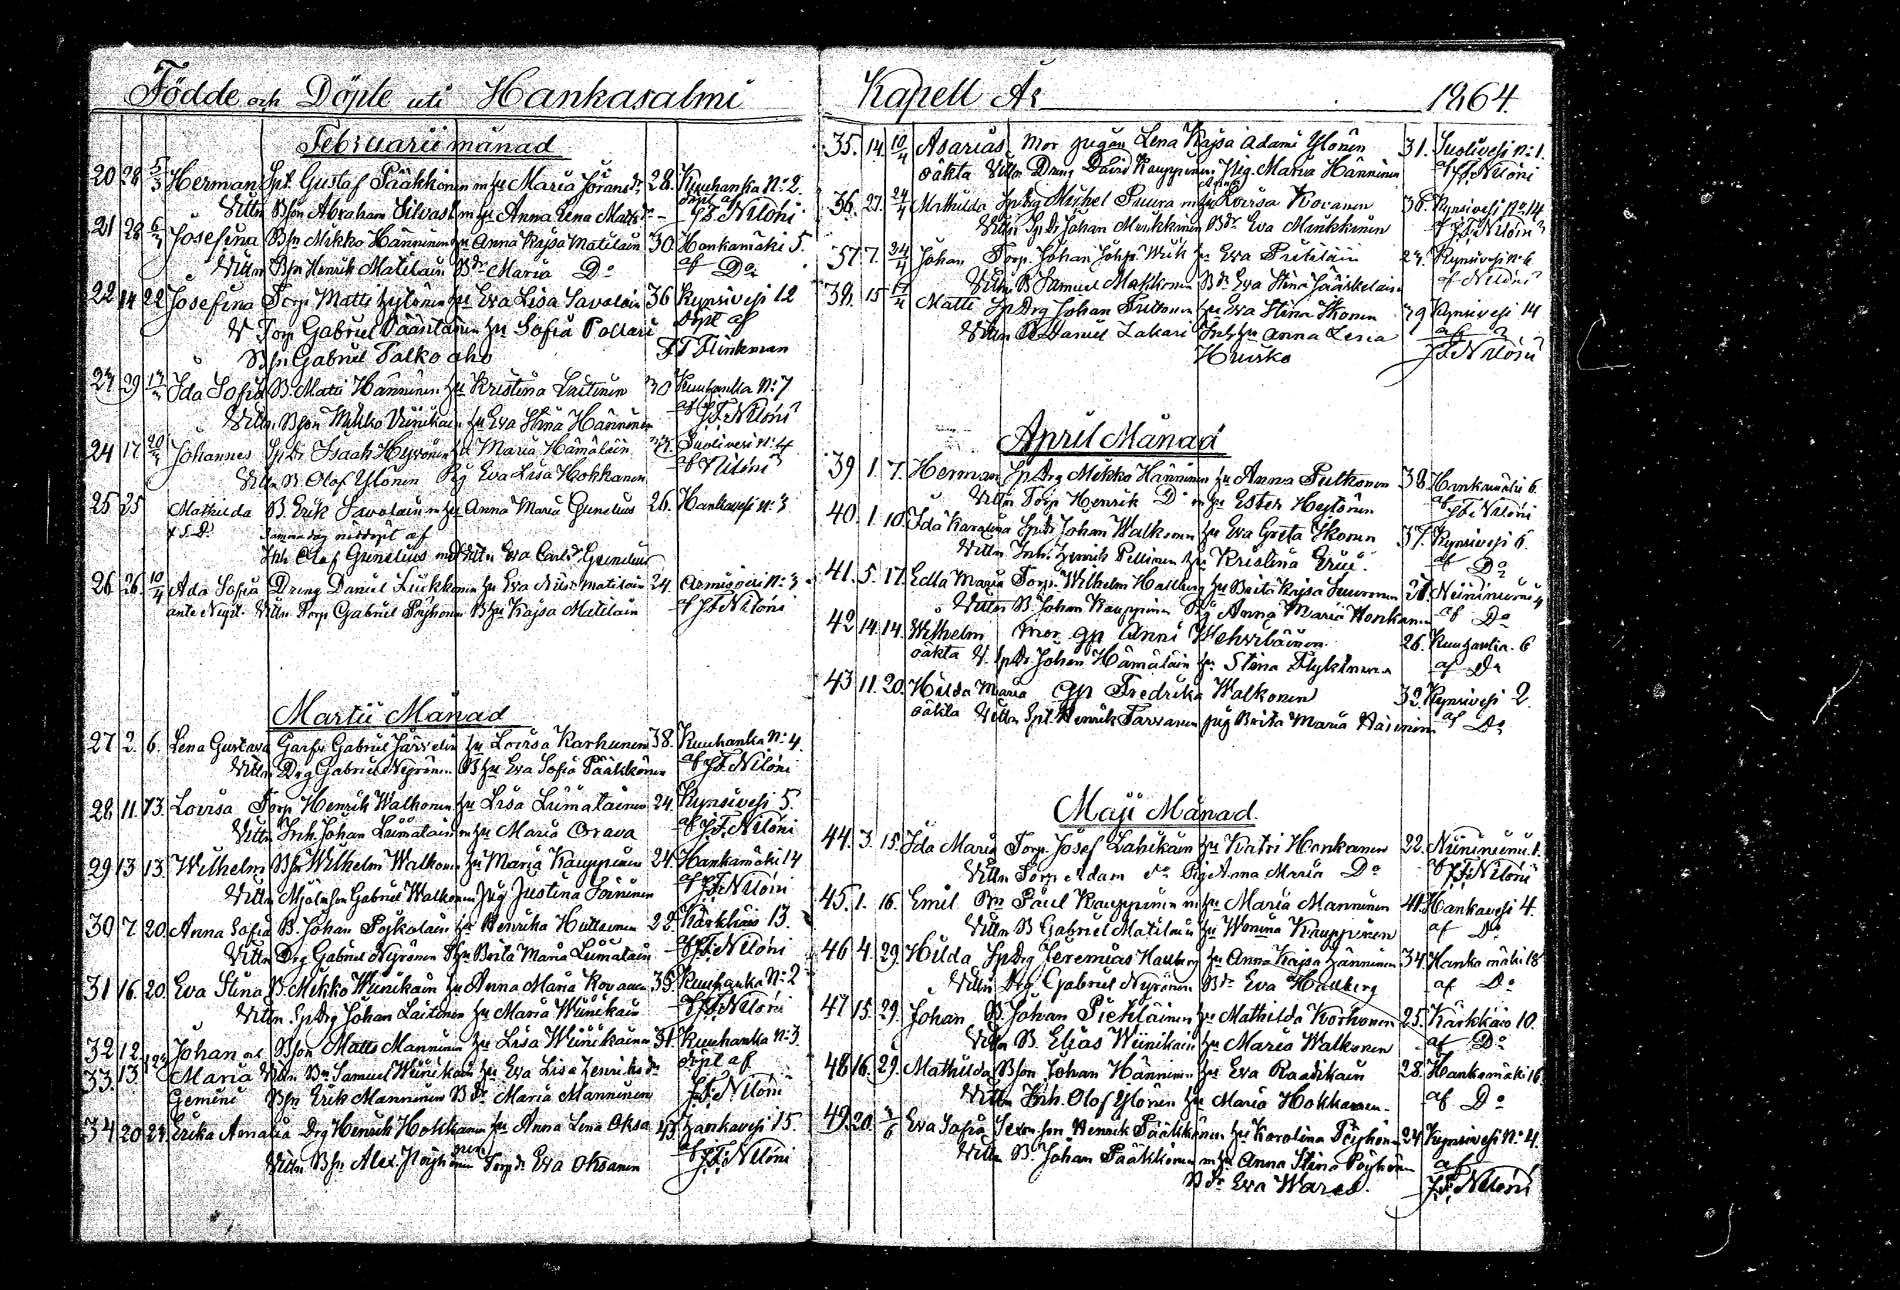 Födde och Döpte uti Hankasalmi
Februarii månad
20 28 5/3 Herman Spt. Gustaf Pääkkönen m hu Maria Göransdr 28. Kuuhanka N:2.
Vittn Bson Abraham Silvast m hu Anna Lena Mattsdr döpt af J.F. Niloni
21 28 6/3 Josefina Bsn Mikko Hänninen hu Anna Kajsa Matilain 30. Hankamäki 5.
Vittn Bsn Henrik Matilain Bdr Maria Do af Do
22 14 22 Josefina Torp Matts hu Eva Lisa Savolain 36 Kynsivesi 12
V Torp Gabriel Väänänen hu Sofia Pollari Döpt af
Bsn Gabriel Talko aho J F Flinkman
23 29 13/3 Ida Sofia B. Matts Hänninen hu Kristina Laitinen 30 Kuuhanka N:7
Vittn Bson Mikko Wiinikain hu Eva Stina Hänninen af J.F. Niloni
24 17 20/3 Johannes Sp.Dr. Isaak Hyvönen hu Maria Hämäläin Suolivesi N:4
Vittn B. Olof Ylönen Pig Eva Lisa Hokkanen af Niloni
25 25 Mathilda B. Erik Savolain m hu Anna Maria Gunelius 26. Hankavesi N:3
samma dag nöddöpt af
Inh Olof Gunelius med Vittn Eva Carlsdr Gunelius
26 26 10/4 Ada Sofia Dreng Daniel Liukkonen hu Eva Matilain 24. Armisveri N:3
ante Nupt. Vittn Torp Gabriel Pöyhönen B hu Kajsa Matilain af J.F. Niloni
Martii Månad
27 2. 6. Lena Gustava Garfv Gabriel Järvelin hu Lovisa Karhunen 38. Kuuhanka N:4.
Vittn Drg Gabriel Nyrönen B hu Eva Sofia Pääkkönen af J.F. Niloni
28 11. 13. Lovisa Torp Henrik Walkonen hu Lisa Liimatainen 24. Kynsivesi 5.
Vittn Inh. Johan Liimatain m hu Maria Orava af J.F. Niloni
29 13 13. Wilhelm Bsn Wilhelm Walkonen hu Maria Kauppinen 24. Hankamäki 14
Vittn Mjöln son Gabriel Walkonen Pig Justina Soininen af J.F. Niloni
30 7 20. Anna Sofia B. Johan Pojkolain hu Henrika Huttunen 22. Kärkkäis 13.
Vittn Drg Gabriel Nyrönen B hu Brita Maria Liimatain af J.F. Niloni
31 16. 20. Eva Stina B. Mikko Wiinikain hu Anna Maria Kovanen 35. Kuuhanka N:2
Vittn Sp Drg Johan Laitinen hu Maria Wiinikain af J.F. Niloni
32 12. Johan och Bson Matts Manninen hu Lisa Wiinikainen 31. Kuuhanka N:3.
33. 13. Maria Vittn Bn Samuel Wiinikain hu Eva Lisa Henriksdr döpt af
Gemini Bsn Erik Manninen Bdr Maria Manninen J.F. Niloni
34 20 24 Erika Amalia Drg Henrik Hokkanen hu Anna Lena Oksa 43. Hankavesi 15.
Vittn Bsn Alex. Pöyhönen Torp dr Eva Oksanen af J.F. Niloni
Kapell År 1864.
35. 14. 10/4 Asarias Mor pigan Lena Kajsa Adami Ylönen 31. Suolivesi N:1.
oäkta Vittn Dreng David Kauppinen Pig. Maria Hänninen af J.F. Niloni
36. 27. 24/4 Mathilda Sp Drg Mishel Puura m hu Anna Lovisa Kovanen 38. Kynsivesi No 14
Vittn Sp Dr Johan Munkkinen Bdr Eva Munkkinen af J.F. Niloni
37 7. 24/4 Johan Torp. Johan Johfs Wirk hu Eva 27. Kynsivesi N:6
Vittn B Samuel Makkonen Bdr Eva Stina Jääskelain af Niloni
38. 15 17/4 Matti Sp Drg Johan Puttonen hu Eva Stina Ikonen 39 Kynsivesi 14
Vittn B Daniel Lakari Inh hu Anna Lena af
Hrusko J.F. Niloni
April Månad
39 1. 7. Herman Sp Drg Mikko Hänninen hu Anna Pulkonen 38 Hankamäki 6.
Vittn Torp Henrik Do m hu Ester Heytönen af J.F. Niloni
40. 1. 10 Ida Karolina Sp Dr Johan Walkonen hu Eva Greta Ikonen 37. Kynsivesi 6.
Vittn Inh. Henrik Pellinen hu Kristina af Do
41. 5. 17. Edla Maria Torp. Wilhelm Hallberg hu Brita Kajsa Suuronen 31. Niinimäki 4
Vittn B. Johan Kauppinen Pig Anna Maria Honkanen af Do
42 14. 14. Wilhelm Mor Gp Anni Wehviläinen 26. Kuuhanka. 6
oäkta V. Sp Dr Johan Hämäläin hu Stina Flyktman af Do
43 11. 20. Hilda Maria Gp Fredrika Walkonen 32. Kynsivesi 2.
oäkta Vittn Spt. Henrik Tarvanen Pig Brita Maria Häseninen af Do
Maji Månad.
44. 3. 15. Ida Maria Torp Josef Lahikain hu Katri Honkanen 22. Niinimäki. 1.
Vittn Torp Adam do Pig Anna Maria Do af J.F. Niloni
45. 1. 16. Emil Bn Paul Kauppinen m hu Maria Manninen 41. Hankavesi 4.
Vittn B Gabriel Matilain hu Kauppinen af Do
46 4. 29. Hilda Sp Drg Jeremias Hallberg hu Anna Kajsa Hänninen 34. Hankamäki 18
Vittn Drg Gabriel Nyrönen Bdr Eva Hallberg af Do
47 15. 29. Johan B. Johan Pieklainen hu Mathilda Korhonen 25. Kärkkäis 10.
Vittn B. Elias Wiinikain hu Maria Walkonen af Do
48 16. 29. Mathilda Bson Johan Hänninen hu Eva Raatikain 28. Hankamäki 16.
Vittn Inh. Olof Ylönen hu Maria Hokkanen. af Do
49. 20. Eva Sofia Sexm. son Henrik Pääkkönen hu Karolina Pöyhönen 24. Kynsivesi N:4.
Vittn B. Johan Pääkkönen m hu Anna Stina Pöyhönen af
Bdr Eva Wares. J.F. Niloni